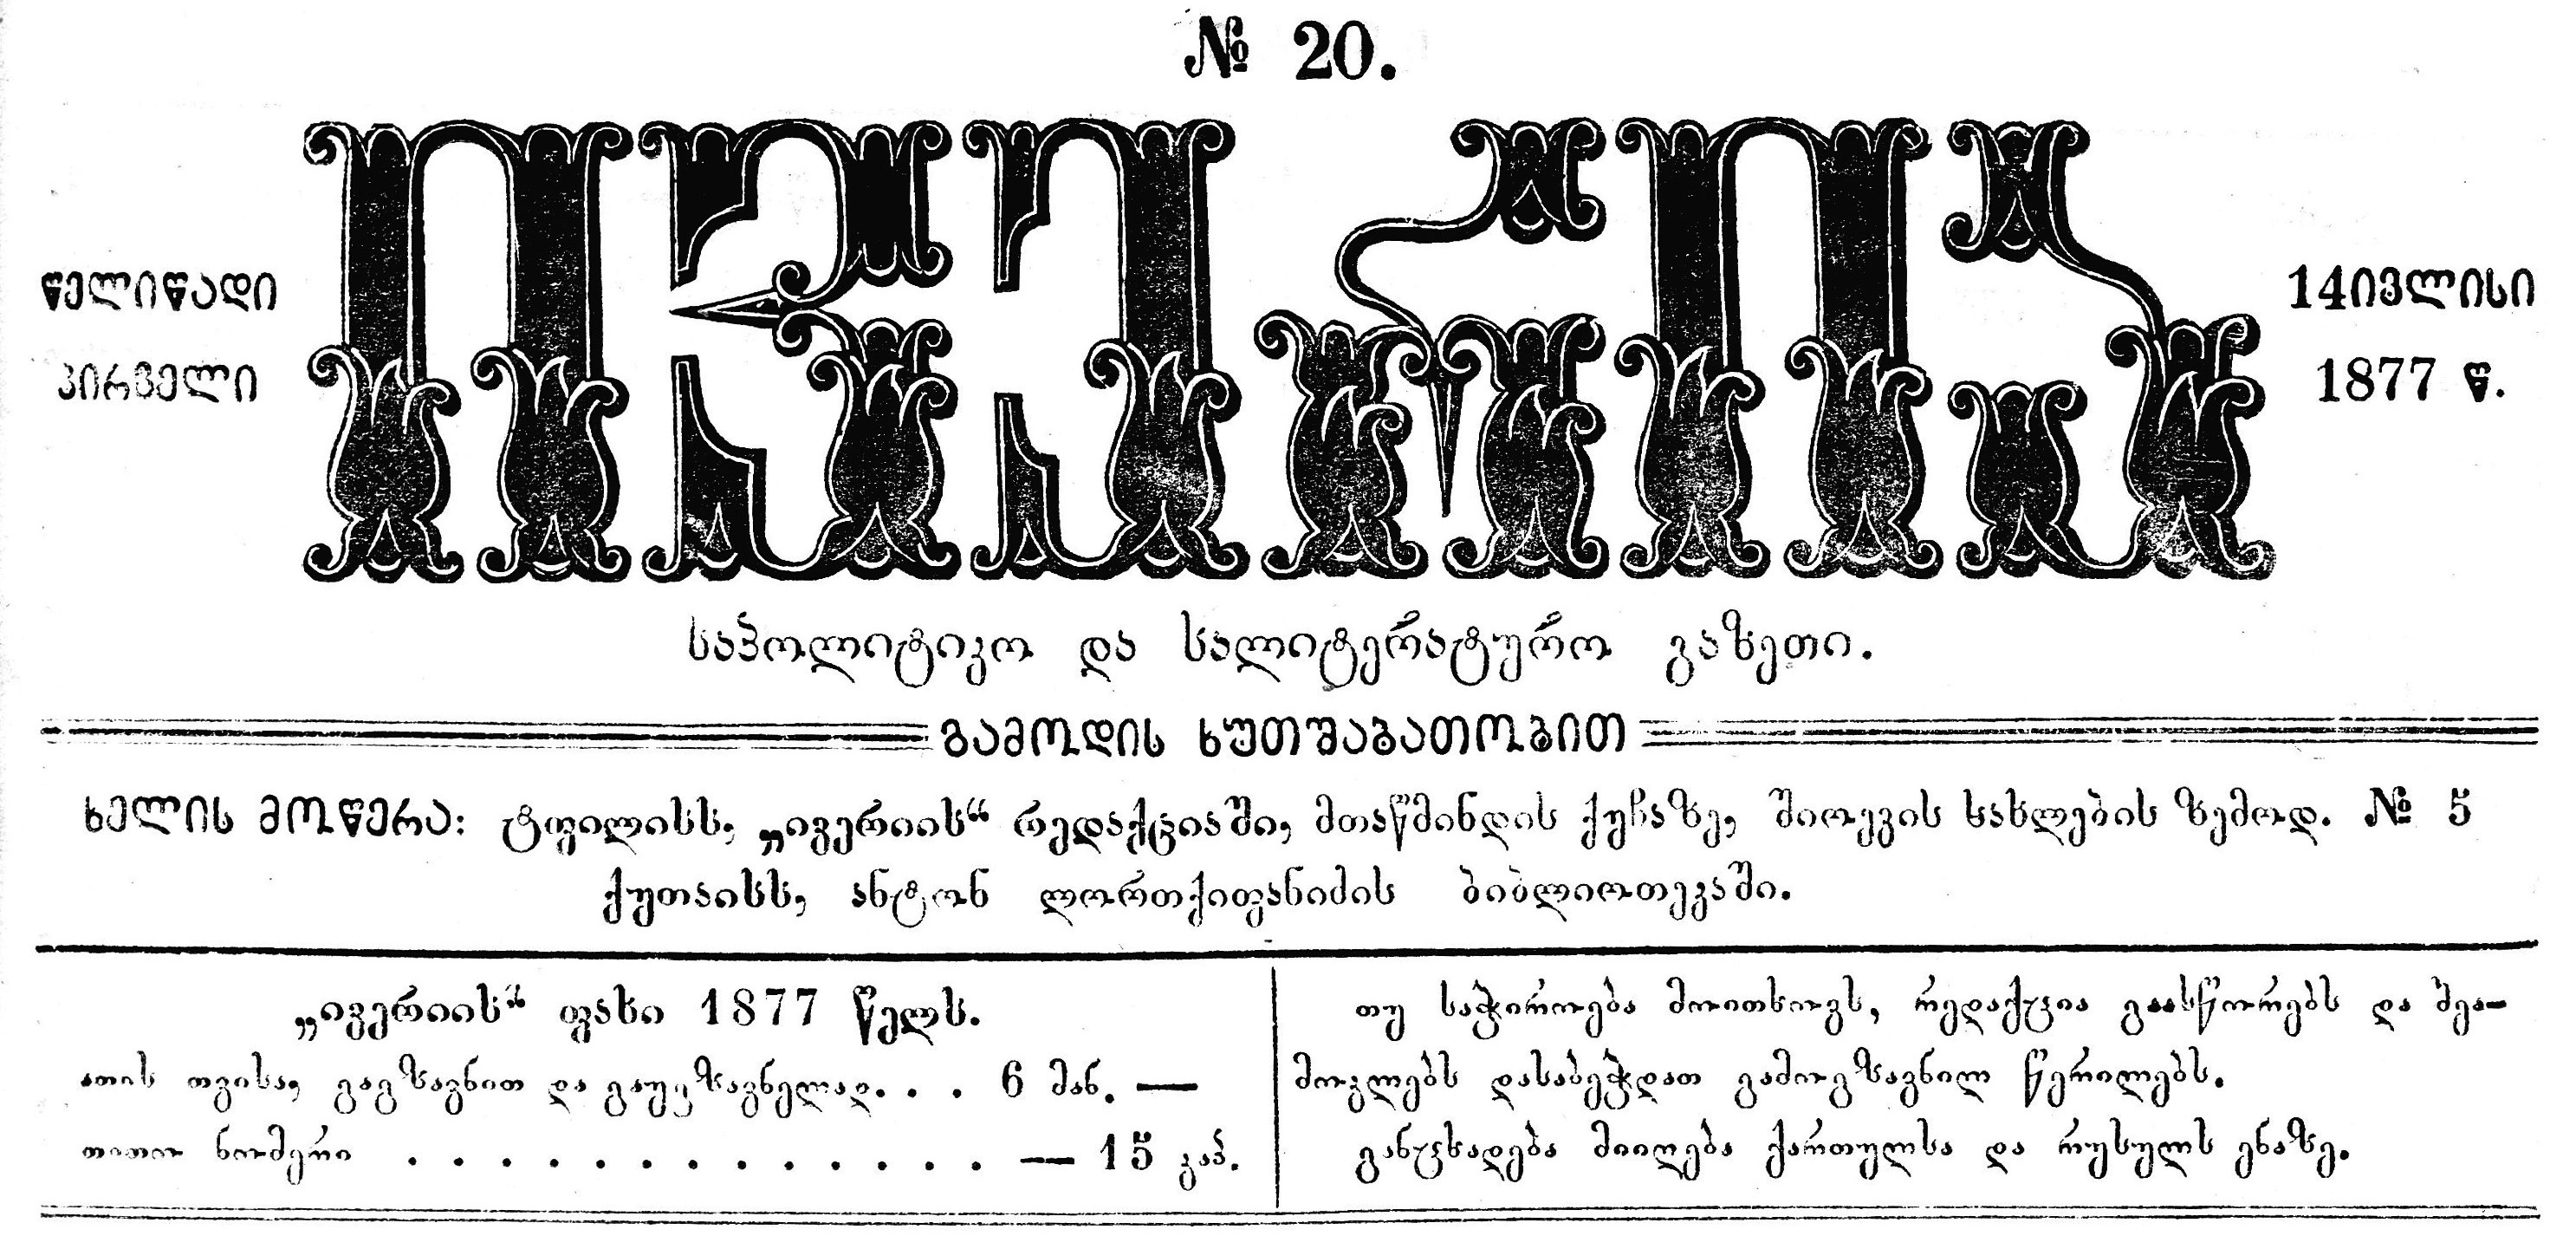 № 20.
ივერია
წელიწადი
პირველი
14 ივლისი
1877 წ.
საპოლიტიკო და სალიტერატურო გაზეთი.
გამოდის ხუთშაბათობით
ხელის მოწერა: ტფილისს, „ივერიის“ რედაქციაში, მთაწმინდის ქუჩაზე, შიოევის სახლების ზემოდ. № 5
ქუთაისს, ანტონ ლორთქიფანიძის ბიბლიოთეკაში.
„ივერიის“ ფასი 1877 წელს.
ათის თვისა, გაგზავნით და გაუგზავნელად. . . 6 მან. —
თითო ნომერი . . . . . . . . . . . . . . — 15 კაპ.
თუ საჭიროება მოითხოვს, რედაქცია გაასწორებს და შეა-
მოკლებს დასაბეჭდათ გამოგზავნილ წერილებს.
განცხადება მიიღება ქართულსა და რუსულს ენაზე.